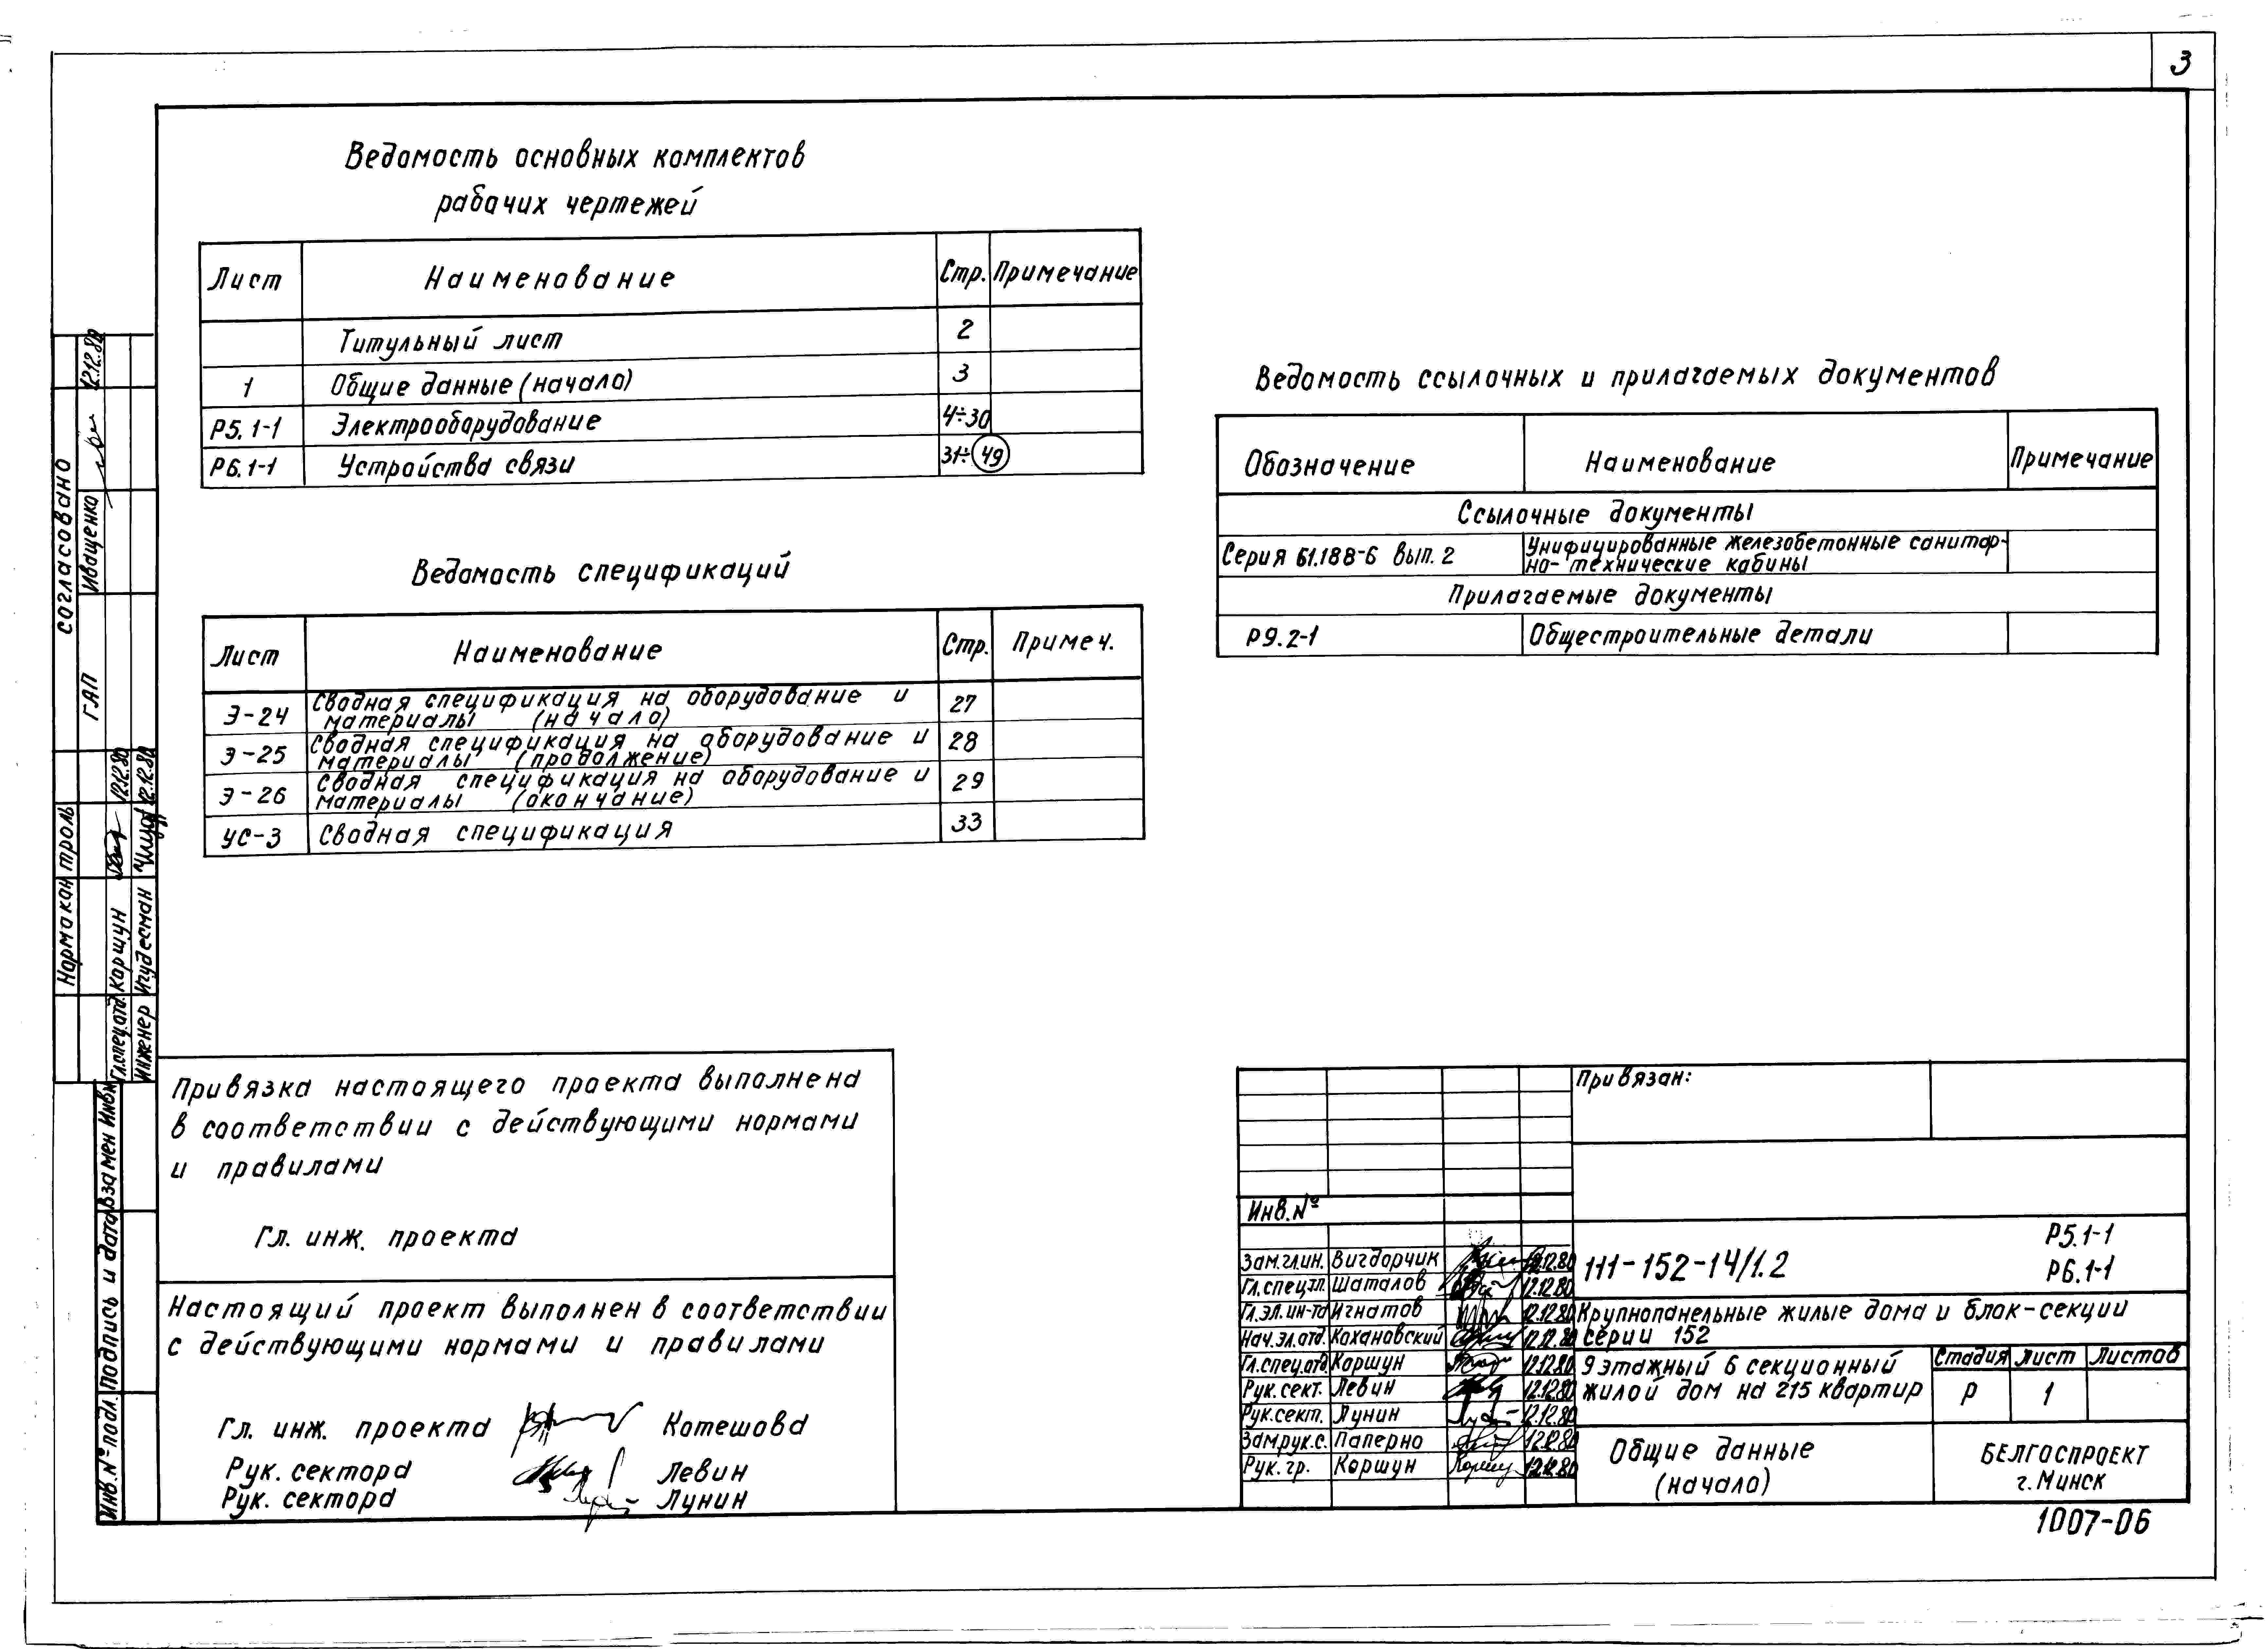 3
Ведомость основных комплектов
рабочих чертежей
Лист Наименование Стр. Примечание
Титульный лист 2
1 Общие данные (начало) 3
Р5.1-1 Электрооборудование 4÷30
Р6.1-1 Устройства связи 31÷49
Ведомость спецификаций
Лист Наименование Стр. Примеч.
Э-24 Сводная спецификация на оборудование и 27
материалы (начало)
Э-25 Сводная спецификация на оборудование и 28
материалы (продолжение)
Э-26 Сводная спецификация на оборудование и 29
материалы (окончание)
УС-3 Сводная спецификация 33
Ведомость ссылочных и прилагаемых документов
Обозначение Наименование Примечание
Ссылочные документы
Серия Б1.188-6 вып. 2 Унифицированные железобетонные санитар-
но-технические кабины
Прилагаемые документы
Р9.2-1 Общестроительные детали
Привязка настоящего проекта выполнена
в соответствии с действующими нормами
и правилами
Гл. инж. проекта
Настоящий проект выполнен в соответствии
с действующими нормами и правилами
Гл. инж. проекта Котешова
Рук. сектора Левин
Рук. сектора Лунин
согласовано
ГАП Иващенко 12.12.80
Нормаконтроль
Гл.спец.отд. Коршун 12.12.80
Инженер Игудесман 12.12.80
Взамен Инв.№
Подпись и дата
Инв.№подл.
Привязан:
Инв.№
Зам.гл.ин. Вигдарчик 12.12.80
Гл.спец.тп. Шаталов 12.12.80
Гл.эл.ин-та Игнатов 12.12.80
Нач.эл.отд. Кохановский 12.12.80
Гл.спец.отд. Коршун 12.12.80
Рук.сект. Левин 12.12.80
Рук.сект. Лунин 12.12.80
Зам.рук.с. Паперно 12.12.80
Рук.гр. Коршун 12.12.80
111-152-14/1.2
Р5.1-1
Р6.1-1
Крупнопанельные жилые дома и блок-секции
серии 152
9 этажный 6 секционный
жилой дом на 215 квартир
Стадия Лист Листов
Р 1
Общие данные
(начало)
БЕЛГОСПРОЕКТ
г. Минск
1007-06